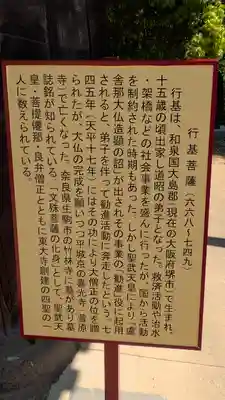 行基菩薩（六六八-七四九）
行基は、和泉国大島郡（現在の大阪府堺市）で生まれ、
十五歳の頃出家し道昭の弟子となった。救済活動や治水
・架橋などの社会事業を盛んに行ったが、国から活動
を制約された時期もあった。しかし聖武天皇により「盧
舎那大仏造顕の詔」が出されその事業の「勧進」役に起用
されると、弟子を伴って勧進活動に奔走したという。七
四五年（天平十七年）にはその功により大僧正の位を贈
られたが、大仏の完成を願いつつ平城京の喜光寺（菅原
寺）で亡くなった。奈良県生駒市の竹林寺に墓があり墓
誌銘が知られている。「文殊菩薩の化身」として、聖武天
皇・菩提僊那・良弁僧正とともに東大寺創建の四聖の一
人に数えられている。